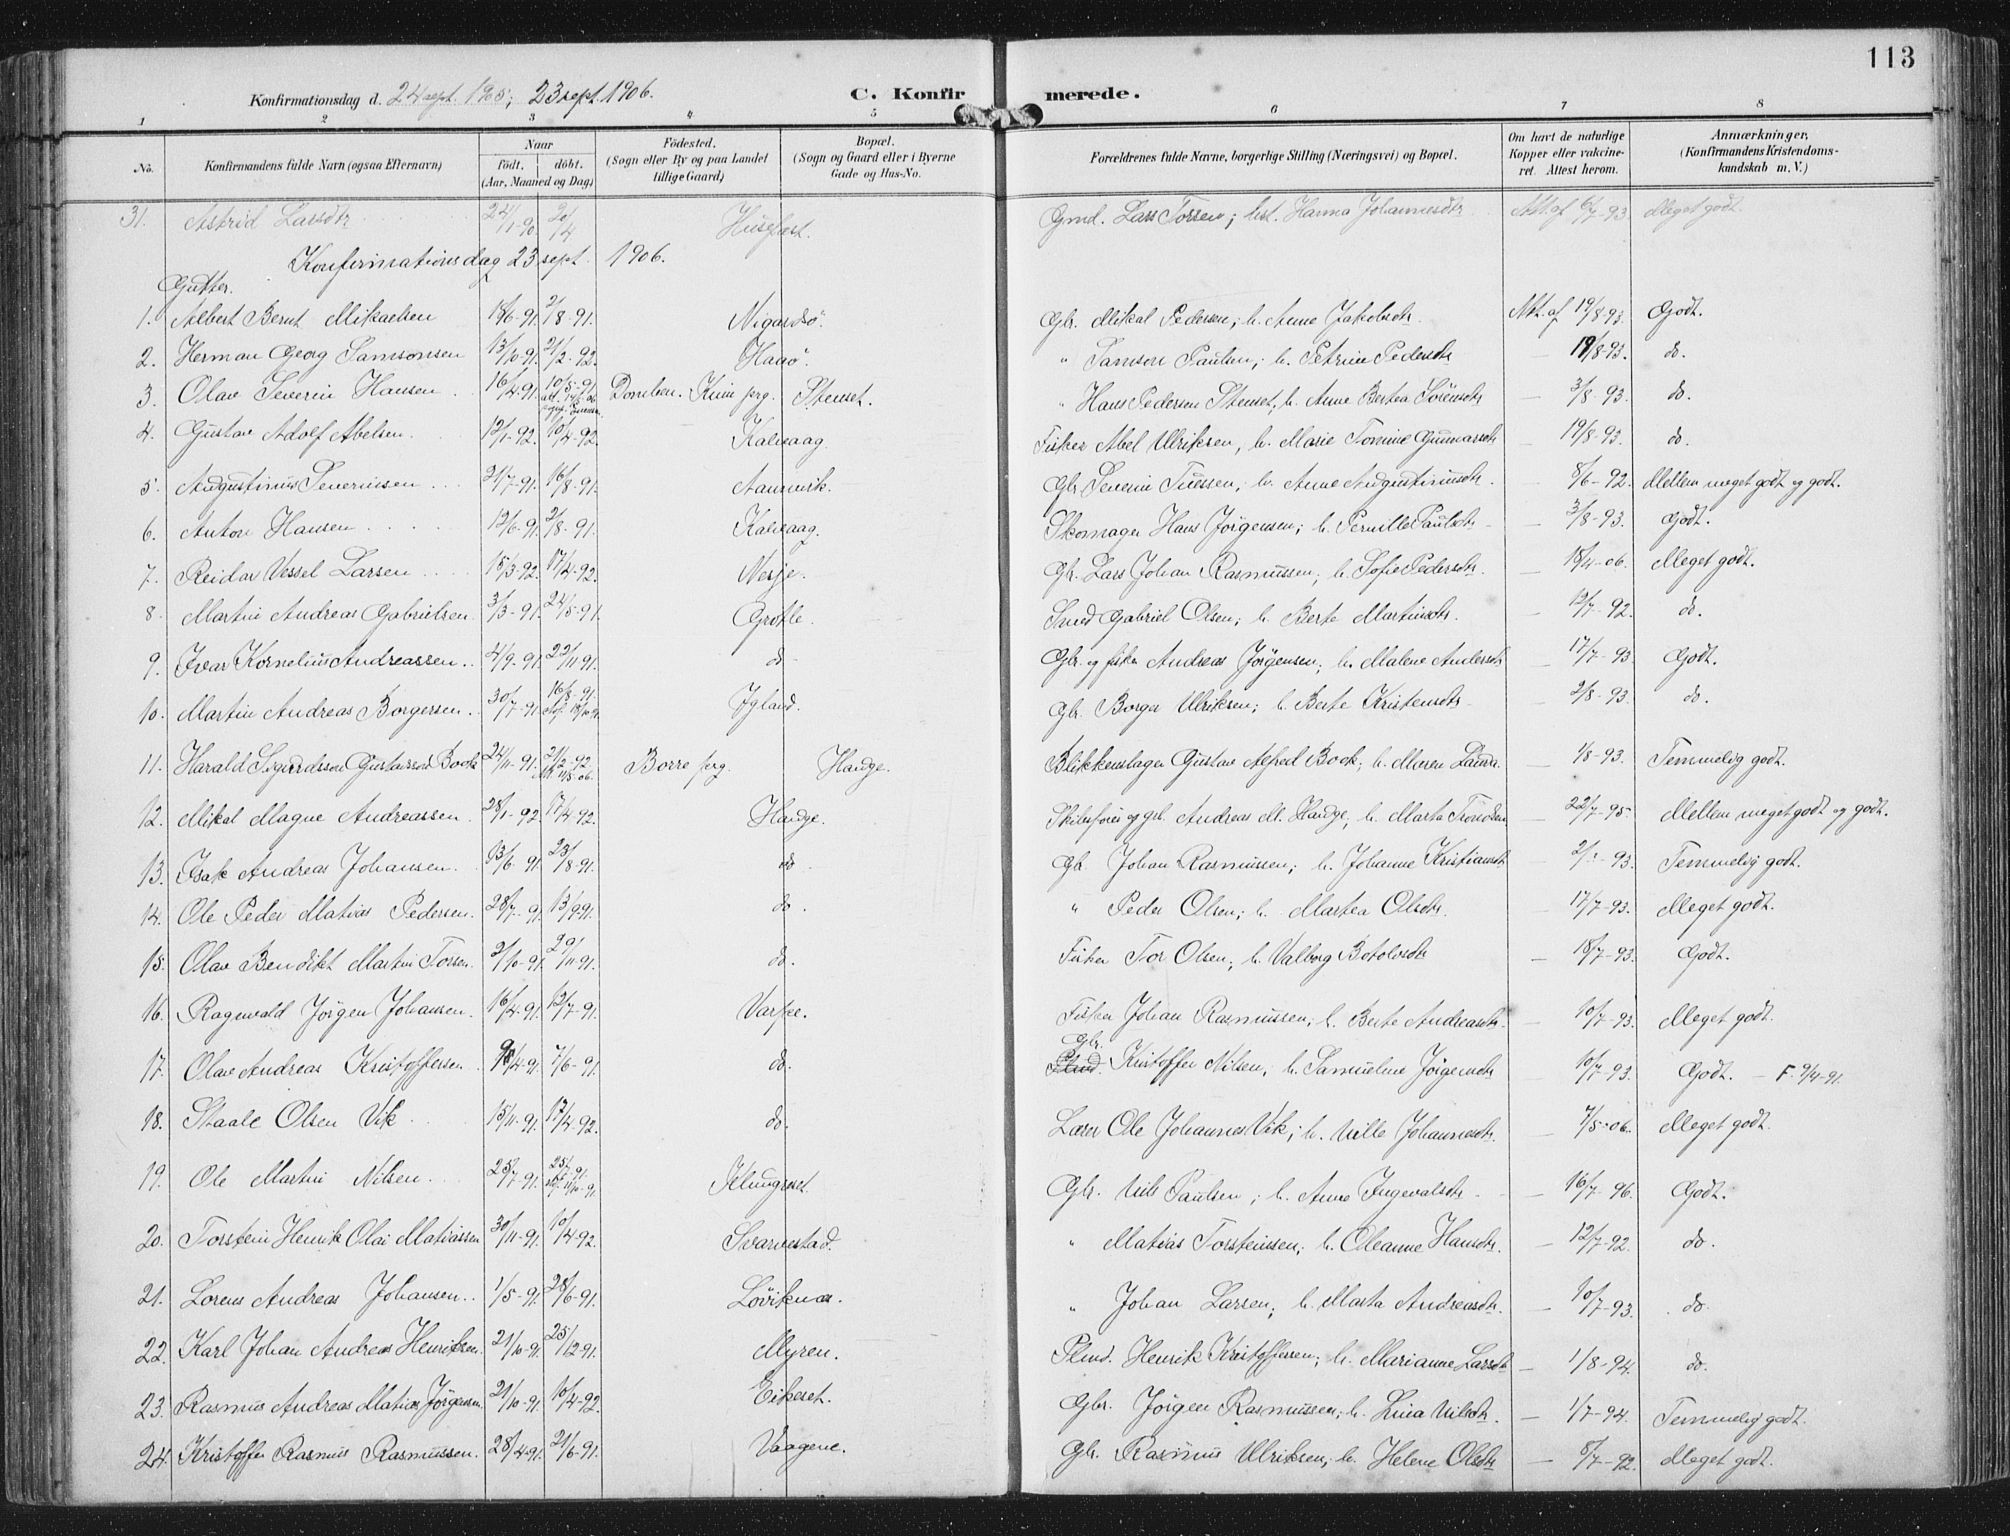 113
Konfirmationsdag d. 24 sept. 1905; 23 sept. 1906. C. Konfirmerede.
1 2 3 4 5 6 7 8
No. Konfirmandens fulde Navn (ogsaa Efternavn) Naar født. døbt. (Aar, Maaned og Dag) Födested. (Sogn eller By og paa Landet tillige Gaard) Bopæl. (Sogn og Gaard eller i Byerne Gade og Hus-No. Forældrenes fulde Navne, borgerlige Stilling (Næringsvei) og Bopæl. Om havt de naturlige Kopper eller vakcineret. Attest herom. Anmærkninger, (Konfirmandens Kristendomskundskab m. V.)
31. Astrid Larsdtr 24/1-90. 20/4 Husefæst. Gmd. Lars Torsen; hst. Hanna Johannesdtr Att. af 6/7-93. Meget godt.
Konfirmationsdag 23 sept. 1906.
Gutter.
1. Albert Bernt Mikaelsen 18/6-91. 2/8-91. Nigardsø. Gbr. Mikal Pedersen; h. Anne Jakobsdtr. Att. af 19/8-93. Godt.
2. Herman Georg Samsonsen 13/10-91. 21/2-92. Haaø. " Samson Paulsen; h. Petrine Pedersdtr — 19/8-93. do.
3. Olav Severin Hansen 16/4-91. 10/5-91. Domben. Kinn prg. Stenset. " Hans Pedersen Stenset, h. Anne Bertea Sörensdtr — 3/8-93. do.
4. Gustav Adolf Abelsen. 12/1-92. 10/4-92. Kalvaag. Fisker Abel Ulriksen, h. Marie Tomine Gunnarsdtr — 19/8-93. do.
5. Augustinus Severinsen 21/7-91. 16/8-91. Aannevik. Gbr. Severin h. Anne Augustinusdtr. — 8/6-92. Mellem meget godt og godt.
6. Anton Hansen 12/6-91. 2/8-91. Kalvaag. Skomager Hans Jørgensen; h. Pernille Paulsdtr — 3/8-93. Godt.
7. Reidar Vessel Larsen 15/3-92. 17/4-92. Nesje. Gbr. Lars Johan Rasmussen; h. Sofie Pedersdtr. — 18/4-06. Meget godt.
8. Martin Andreas Gabrielsen 3/3-91. 24/5-91. Grotle. Smed Gabriel Olsen; h. Berte Martinsdtr. — 12/7-92. do.
9. Ivar Kornelius Andreassen 4/9-91. 22/11-91. do Gbr. og fisker Andreas Jørgensen; h. Malene Andersdtr — 17/7-93. Godt.
10. Martin Andreas Borgersen 30/7-91. 16/8-91. Igland. Gbr. Borger Ulriksen; h. Berte Kristensdtr — 2/8-93. do.
11. Harald Sigurdsson Gustavson Book 24/11-91. 21/2-92 Borre prg. Hauge. Blikkenslager Gustav Alfred Book; h. Maren Laura. — 1/8-93. Temmelig godt.
12. Mikal Magne Andreassen 28/1-92. 17/4-92. Hauge. Andreas M. Hauge, h. Marta — 22/7-95 Mellem meget godt og godt.
13. Isak Andreas Johansen 13/6-91. 23/8-91. do Gbr. Johan Rasmussen; h. Johanne Kristiansdtr — -93. Temmelig godt.
14. Ole Peder Matias Pedersen 28/7-91. 13/9-91. do. " Peder Olsen; h. Martea Olsdtr. — 17/7-93. Meget godt.
15. Olav Bendikt Martin Torsen 2/10-91. 29/11-91. do. Fisker Tor Olsen; h. Valborg Botolvsdtr — 18/7-93. Godt.
16. Ragnvald Jørgen Johansen 16/4-91. 12/7-91. Varpe. Fisker Johan Rasmussen; h. Berte Andreasdtr. — 10/7-93. Meget godt.
17. Olav Andreas Kristoffersen 9/4-91. 7/6-91. do. Gbr. Kristoffer Nilsen, h. Samueline Jørgensdtr — 10/7-93. Godt. — F. 9/4-91.
18. Staale Olsen Vik 15/11-91. 17/4-92. do. Lærer Ole Johannes Vik; h. Nille Johannesdtr. — 7/5-06. Meget godt.
19. Ole Martin Nilsen 25/7-91. Klungreset. Gbr. Nils Paulsen; h. Anne Ingevalsdtr — 16/7-96. Godt.
20. Torstein Henrik Olai Matiassen 30/11-91. 10/4-92. Svarvestad. " Matias Torsteinssen, h. Oleanne Hansdtr. — 12/7-92. do.
21. Lorens Andreas Johansen 1/5-91. 28/6-91. Löviknæ. " Johan Larsen; h. Marta Andreasdtr. — 10/7-93. do.
22. Karl Johan Andreas Henriksen 21/10-91. 25/12-91. Myren. Plmd. Henrik Kristoffersen; h. Marianne Larsdtr — 1/8-94. do.
23. Rasmus Andreas Matias Jörgensen 21/10-91. 10/4-92. Eikeset. Gbr. Jörgen Rasmussen; h. Lina Nilsdtr. — 1/7-94. Temmelig godt.
24. Kristoffer Rasmus Rasmussen. 28/4-91. 21/6-91. Vaagene. Gbr. Rasmus Ulriksen; h. Helene Olsdtr — 8/7-92. Meget godt.